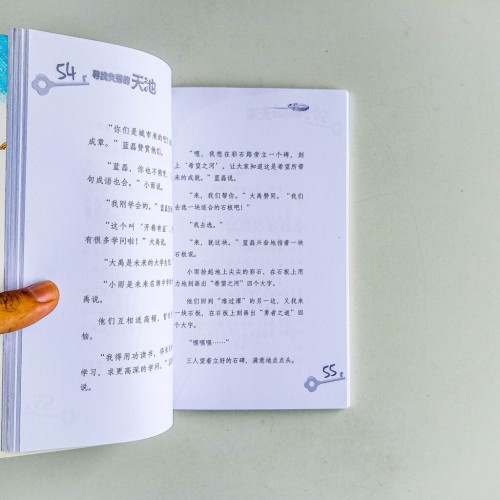 54
寻找失落的天池
"你们是城市来的吧
成章。"蓝磊赞赏他们。
"蓝磊，你也不赖
句成语也会。"小雨说。
"我刚学会的。"蓝磊
"这个叫'开卷有益'
有很多学问啦！"大禹说。
"大禹是未来的大学生
"小雨是未来名牌中学
禹说。
他们互相送高帽，暂
恼。
"我得用功读书，将来
学习，求更高深的学问。"
说。
"嘿，我想在彩石路旁立一个碑，刻
上'希望之河'，让大家知道这是希望所带
来的成就。"蓝磊说。
"来，我们帮你。"大禹赞同，"我们
去选一块适合的石板吧！"
"我去选。"
"来，就这块。"蓝磊兴奋地指着一块
石板说。
小雨拾起地上尖尖的彩石，在石板上用
力地刻画出"希望之河"四个大字。
他们回到"难过潭"的另一边，又找来
一块石板，在石板上刻画出"勇者之迹"四
个大字。
"嘿嘿嘿……"
三人望着立好的石碑，满意地点点头。
55